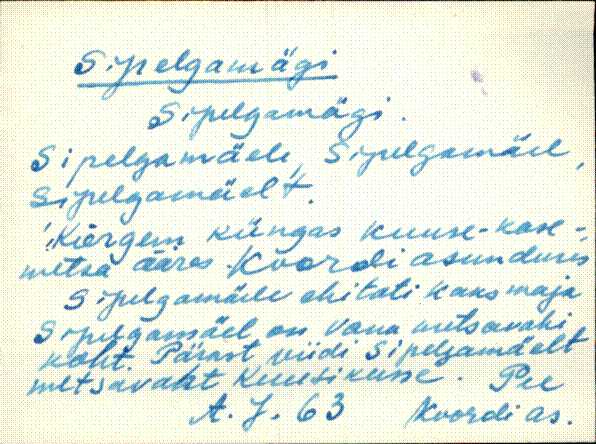 Sipelgamägi
Sipelgamägi.
Sipelgamäele, Sipelgamäel,
Sipelgamäelt.
Kõrgem küngas kuuse-kase-
metsa ääres Koordi asunduses
Sipelgamäele ehitati kaks maja
Sipelgamäel on vana metsavahi
koht. Pärast viidi Sipelgamäelt
metsavaht Kuusikusse. Pee
A. J. 63 Koordi as.